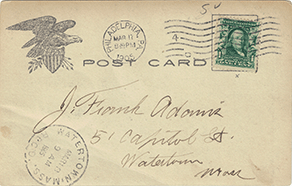 PHILADELPHIA, PA.
MAR 11
POST CARD
J. Frank Adams
51 Capitol St.
Watertown
Mass
WATERTOWN, MASS.
MAR
REC'D.